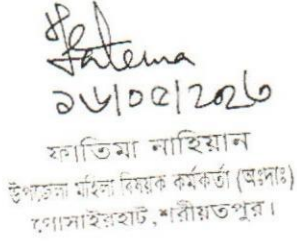 Fatema
১৮/০৫/২০২৩
ফাতিমা নাহিয়ান
উপজেলা মহিলা বিষয়ক কর্মকর্তা (অঃদাঃ)
গোসাইরহাট, শরীয়তপুর।